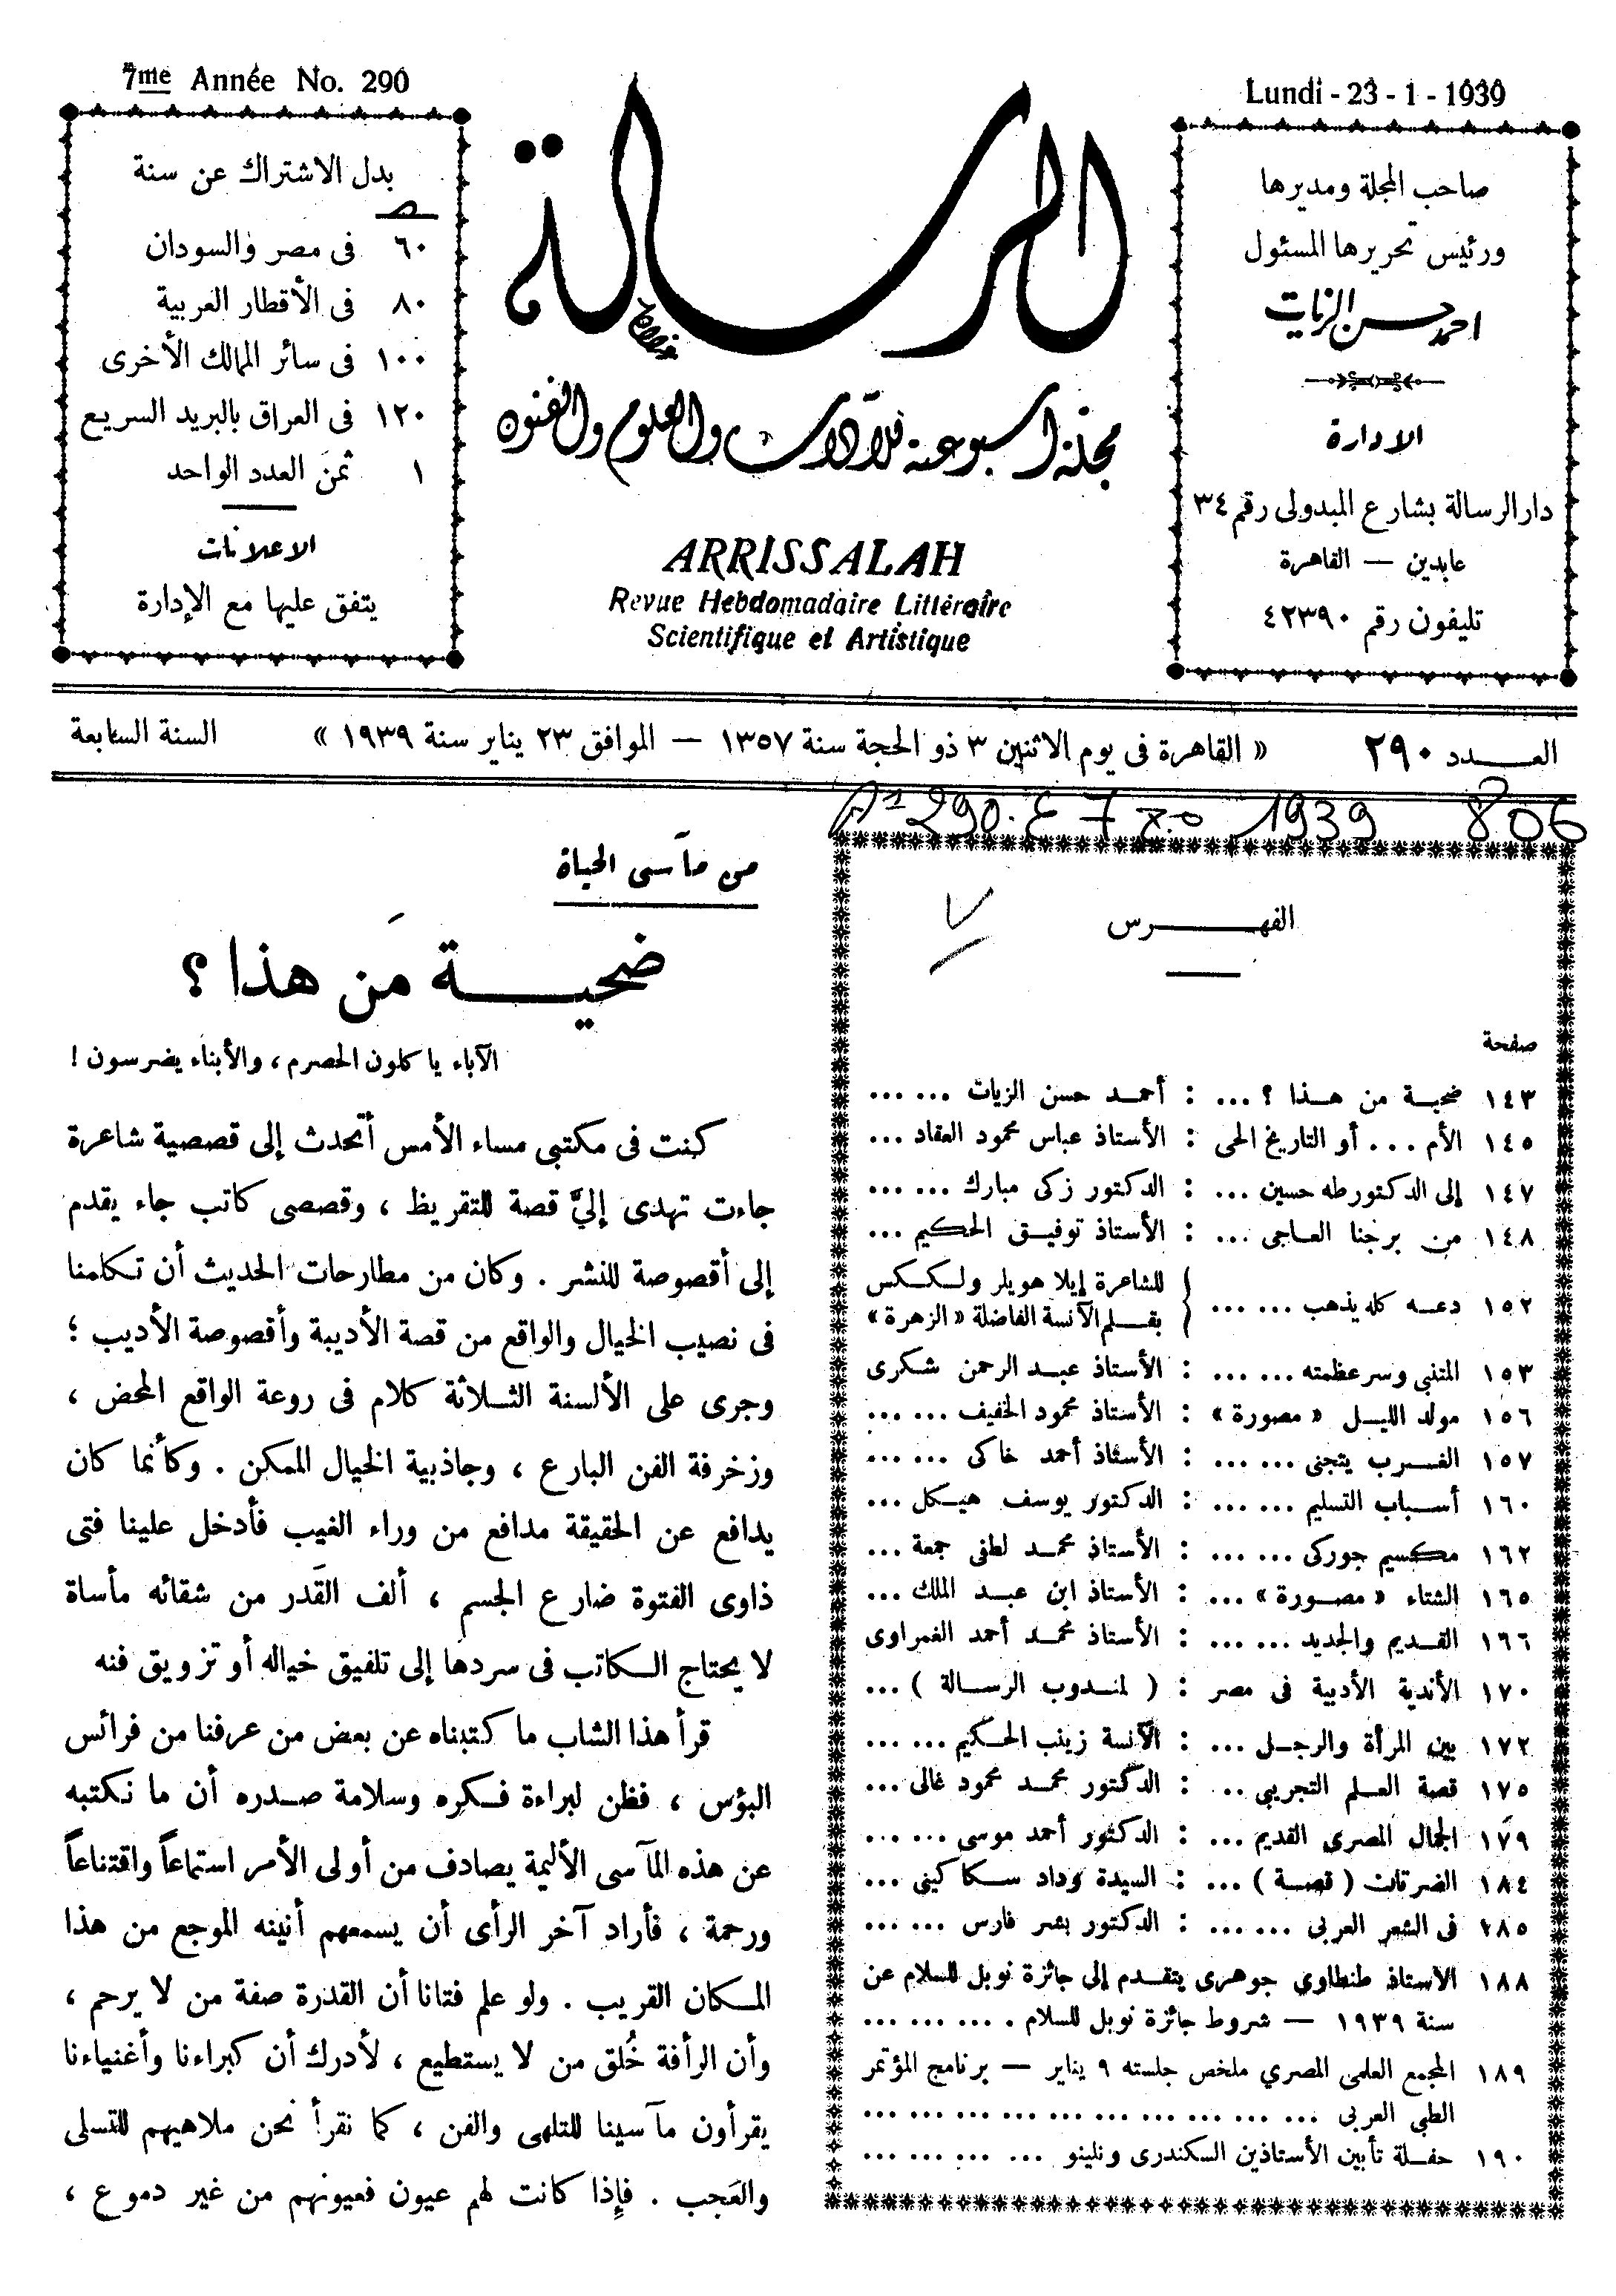 7me Année No. 290
Lundi - 23 - 1 - 1939
صاحب المجلة ومديرها
ورئيس تحريرها المسئول
احمد حسن الزيات
الادارة
دار الرسالة بشارع المبدولى رقم ٣٤
عابدين — القاهرة
تليفون رقم ٤٢٣٩٠
الرسالة
مجلة أسبوعية للآداب والعلوم والفنون
ARRISSALAH
Revue Hebdomadaire Littéraire
Scientifique et Artistique
بدل الاشتراك عن سنة
ص
٦٠ فى مصر والسودان
٨٠ فى الأقطار العربية
١٠٠ فى سائر الممالك الأخرى
١٢٠ فى العراق بالبريد السريع
١ ثمن العدد الواحد
الاعلانات
يتفق عليها مع الإدارة
العـــدد ٢٩٠ « القاهرة فى يوم الاثنين ٣ ذو الحجة سنة ١٣٥٧ — الموافق ٢٣ يناير سنة ١٩٣٩ » السنة السابعة
290 7 1939 806
الفهـــرس
صفحة
١٤٣ ضحية من هذا ؟ ... : أحمد حسن الزيات ... ...
١٤٥ الأم ... أو التاريخ الحى : الأستاذ عباس محمود العقاد ...
١٤٧ إلى الدكتور طه حسين ... : الدكتور زكى مبارك ... ...
١٤٨ من برجنا العاجى ... : الأستاذ توفيق الحكيم ...
١٥٢ دعه كله يذهب ... ... { للشاعرة إيلا هويلر ولككس
بقلم الآنسة الفاضلة «الزهرة»
١٥٣ المتنبى وسر عظمته ... ... : الأستاذ عبد الرحمن شكرى
١٥٦ مولد الليل « مصورة » : الأستاذ محمود الخفيف ... ...
١٥٧ الغرب يتجنى ... ... : الأستاذ أحمد خاكى ... ...
١٦٠ أسباب التسليم ... ... : الدكتور يوسف هيكل ...
١٦٢ مكسيم جوركى ... ... : الأستاذ محمد لطفى جمعة ...
١٦٥ الشتاء « مصورة » ... : الأستاذ ابن عبد الملك ...
١٦٦ القديم والجديد ... ... : الأستاذ محمد أحمد الغمراوى
١٧٠ الأندية الأدبية فى مصر : ( لمندوب الرسالة ) ...
١٧٢ بين المرأة والرجل ... : الآنسة زينب الحكيم ... ...
١٧٥ قصة العلم التجريبى .. : الدكتور محمد محمود غالى ...
١٧٩ الجمال المصرى القديم ... : الدكتور أحمد موسى ... ...
١٨٤ الضرتان ( قصة ) ... : السيدة وداد سكاكينى ...
١٨٥ فى الشعر العربى ... ... : الدكتور بشر فارس ... ...
١٨٨ الأستاذ طنطاوي جوهرى يتقدم إلى جائزة نوبل للسلام عن
سنة ١٩٣٩ — شروط جائزة نوبل للسلام . ... ... ...
١٨٩ المجمع العلمى المصري ملخص جلسته ٩ يناير — برنامج المؤتمر
الطبى العربى ... ... ... ... ... ... ... ... ... ...
١٩٠ حفلة تأبين الأستاذين السكندرى ونلينو ... ... ... ...
من مآسى الحياة
ضحيـــة مَن هذا ؟
الآباء يأكلون الحصرم، والأبناء يضرسون !
كنت فى مكتبى مساء الأمس أتحدث إلى قصصية شاعرة
جاءت تهدى إليَّ قصة للتقريظ ، وقصصى كاتب جاء يقدم
إلى أقصوصة للنشر . وكان من مطارحات الحديث أن تكلمنا
فى نصيب الخيال والواقع من قصة الأديبة وأقصوصة الأديب ؛
وجرى على الألسنة الثلاثة كلام فى روعة الواقع المحض ،
وزخرفة الفن البارع ، وجاذبية الخيال الممكن . وكأنما كان
يدافع عن الحقيقة مدافع من وراء الغيب فأدخل علينا فتى
ذاوى الفتوة ضارع الجسم ، ألف القَدر من شقائه مأساة
لا يحتاج الكاتب فى سردها إلى تلفيق خياله أو تزويق فنه
قرأ هذا الشاب ما كتبناه عن بعض من عرفنا من فرائس
البؤس ، فظن لبراءة فكره وسلامة صدره أن ما نكتبه
عن هذه المآسى الأليمة يصادف من أولى الأمر استماعاً واقتناعاً
ورحمة ، فأراد آخر الرأى أن يسمعهم أنينه الموجع من هذا
المكان القريب . ولو علم فتانا أن القدرة صفة من لا يرحم ،
وأن الرأفة خُلق من لا يستطيع ، لأدرك أن كبراءنا وأغنياءنا
يقرأون مآسينا للتلهى والفن ، كما نقرأ نحن ملاهيهم للتسلى
والعَجب . فإذا كانت لهم عيون فعيونهم من غير دموع ،